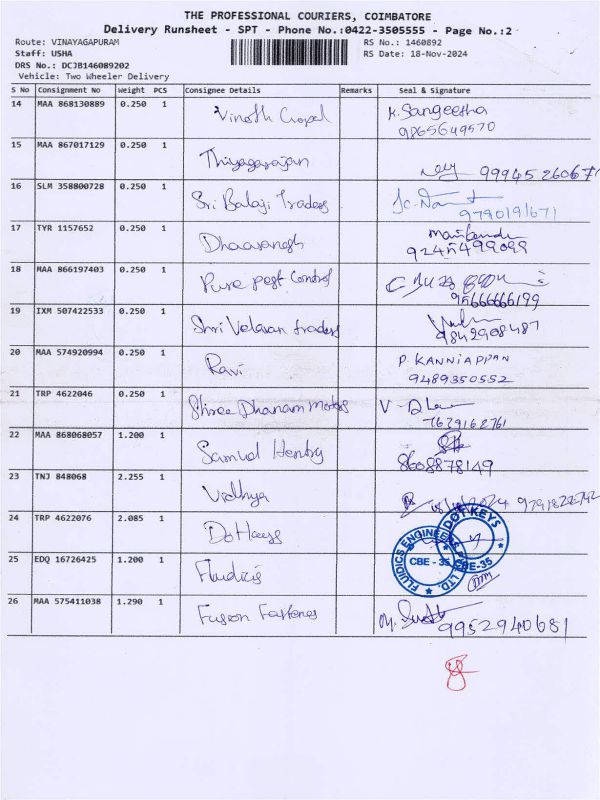 THE PROFESSIONAL COURIERS, COIMBATORE
Delivery Runsheet - SPT - Phone No.:0422-3505555 - Page No.:2
Route: VINAYAGAPURAM RS No.: 1460892
Staff: USHA RS Date: 18-Nov-2024
DRS No.: DCJB146089202
Vehicle: Two Wheeler Delivery
S No Consignment No Weight PCS Consignee Details Remarks Seal & Signature
14 MAA 868130889 0.250 1 Vinoth Gopal K. Sangeetha
9865649570
15 MAA 867017129 0.250 1 Thiyagarajan
99945 26067
16 SLM 358800728 0.250 1 Sri Balaji Traders
9790191671
17 TYR 1157652 0.250 1 Dhaaranesh
9245499099
18 MAA 866197403 0.250 1 Pure pest Control
9566666199
19 IXM 507422533 0.250 1 Shri Velavan traders
9842908487
20 MAA 574920994 0.250 1 Ravi P. KANNIAPPAN
9489350552
21 TRP 4622046 0.250 1 Shree Dhanam motors
7639162761
22 MAA 868068057 1.200 1 Samuel Hentry
8608878149
23 TNJ 848068 2.255 1 Vidhya
24 TRP 4622076 2.085 1 DoHays DOT KEYS
CBE-35
25 EDQ 16726425 1.200 1 Fluidics FLUIDICS ENGINEE LTD.
CBE - 35
26 MAA 575411038 1.290 1 Fusion Fasteners
9952940681